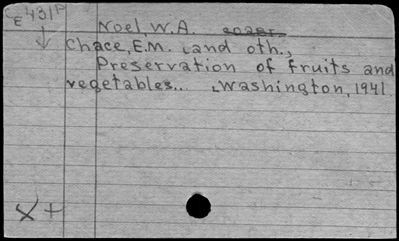 E431P
Noel, W.A.
Chace, E.M. and oth.,
Preservation of fruits and
vegetables... Washington, 1941
X +